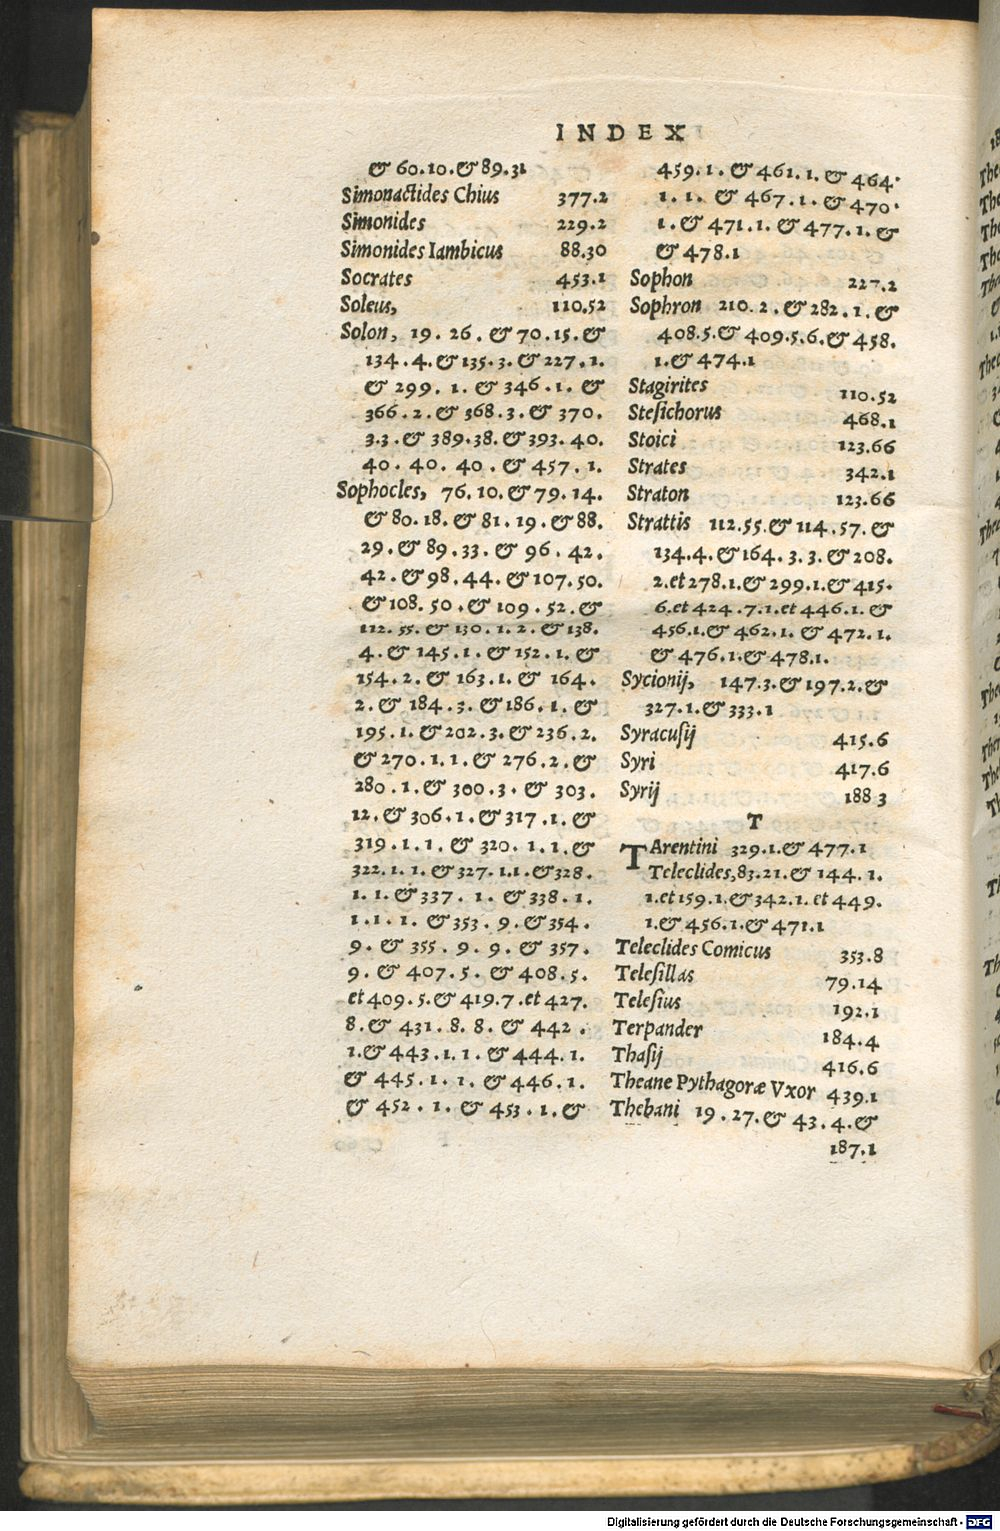 INDEX
& 60.10.& 89.31
Simonactides Chius 377.2
Simonides 229.2
Simonides Iambicus 88.30
Socrates 453.1
Soleus, 110.52
Solon, 19. 26. & 70.15. &
134.4. & 135.3. & 227.1.
& 299. 1. & 346.1. &
366.2. & 368.3. & 370.
3.3. & 389.38. & 393. 40.
40. 40. 40. & 457.1.
Sophocles, 76.10. & 79.14.
& 80.18. & 81. 19. & 88.
29. & 89.33. & 96. 42.
42. & 98.44. & 107.50.
& 108. 50. & 109. 52. &
112. 55. & 130. 1. 2. & 138.
4. & 145.1. & 152. 1. &
154.2. & 163.1. & 164.
2. & 184.3. & 186.1. &
195.1. & 202.3. & 236.2.
& 270.1.1. & 276.2. &
280.1. & 300.3. & 303.
12. & 306.1. & 317.1. &
319.1.1. & 320. 1.1. &
322.1.1. & 327. 1.1. & 328.
1.1. & 337. 1. & 338.1.
1.1.1. & 353. 9. & 354.
9. & 355. 9. 9. & 357.
9. & 407.5. & 408.5.
et 409.5. & 419.7. et 427.
8. & 431.8.8. & 442.
1. & 443.1.1. & 444.1.
& 445.1.1. & 446.1.
& 452.1. & 453.1. &
459.1. & 461.1. & 464.
1.1. & 467.1. & 470.
1. & 471.1. & 477.1. &
& 478.1
Sophon 227.2
Sophron 210.2. & 282.1. &
408.5. & 409.5.6. & 458.
1. & 474.1
Stagirites 110.52
Stesichorus 468.1
Stoici 123.66
Strates 342.1
Straton 123.66
Strattis 112.55. & 114.57. &
134.4. & 164.3.3. & 208.
2. et 278.1. & 299.1. & 415.
6. et 424.7.1. et 446.1. &
456.1. & 462.1. & 472.1.
& 476.1. & 478.1.
Sycionij, 147.3. & 197.2. &
327.1. & 333.1
Syracusij 415.6
Syri 417.6
Syrij 188 3
T
TArentini 329.1. & 477.1
Teleclides, 83.21. & 144.1.
1. et 159.1. & 342.1. et 449.
1. & 456.1. & 471.1
Teleclides Comicus 353.8
Telesillas 79.14
Telesius 192.1
Terpander 184.4
Thasij 416.6
Theane Pythagoræ Vxor 439.1
Thebani 19.27. & 43.4. &
187.1
Digitalisierung gefördert durch die Deutsche Forschungsgemeinschaft - DFG